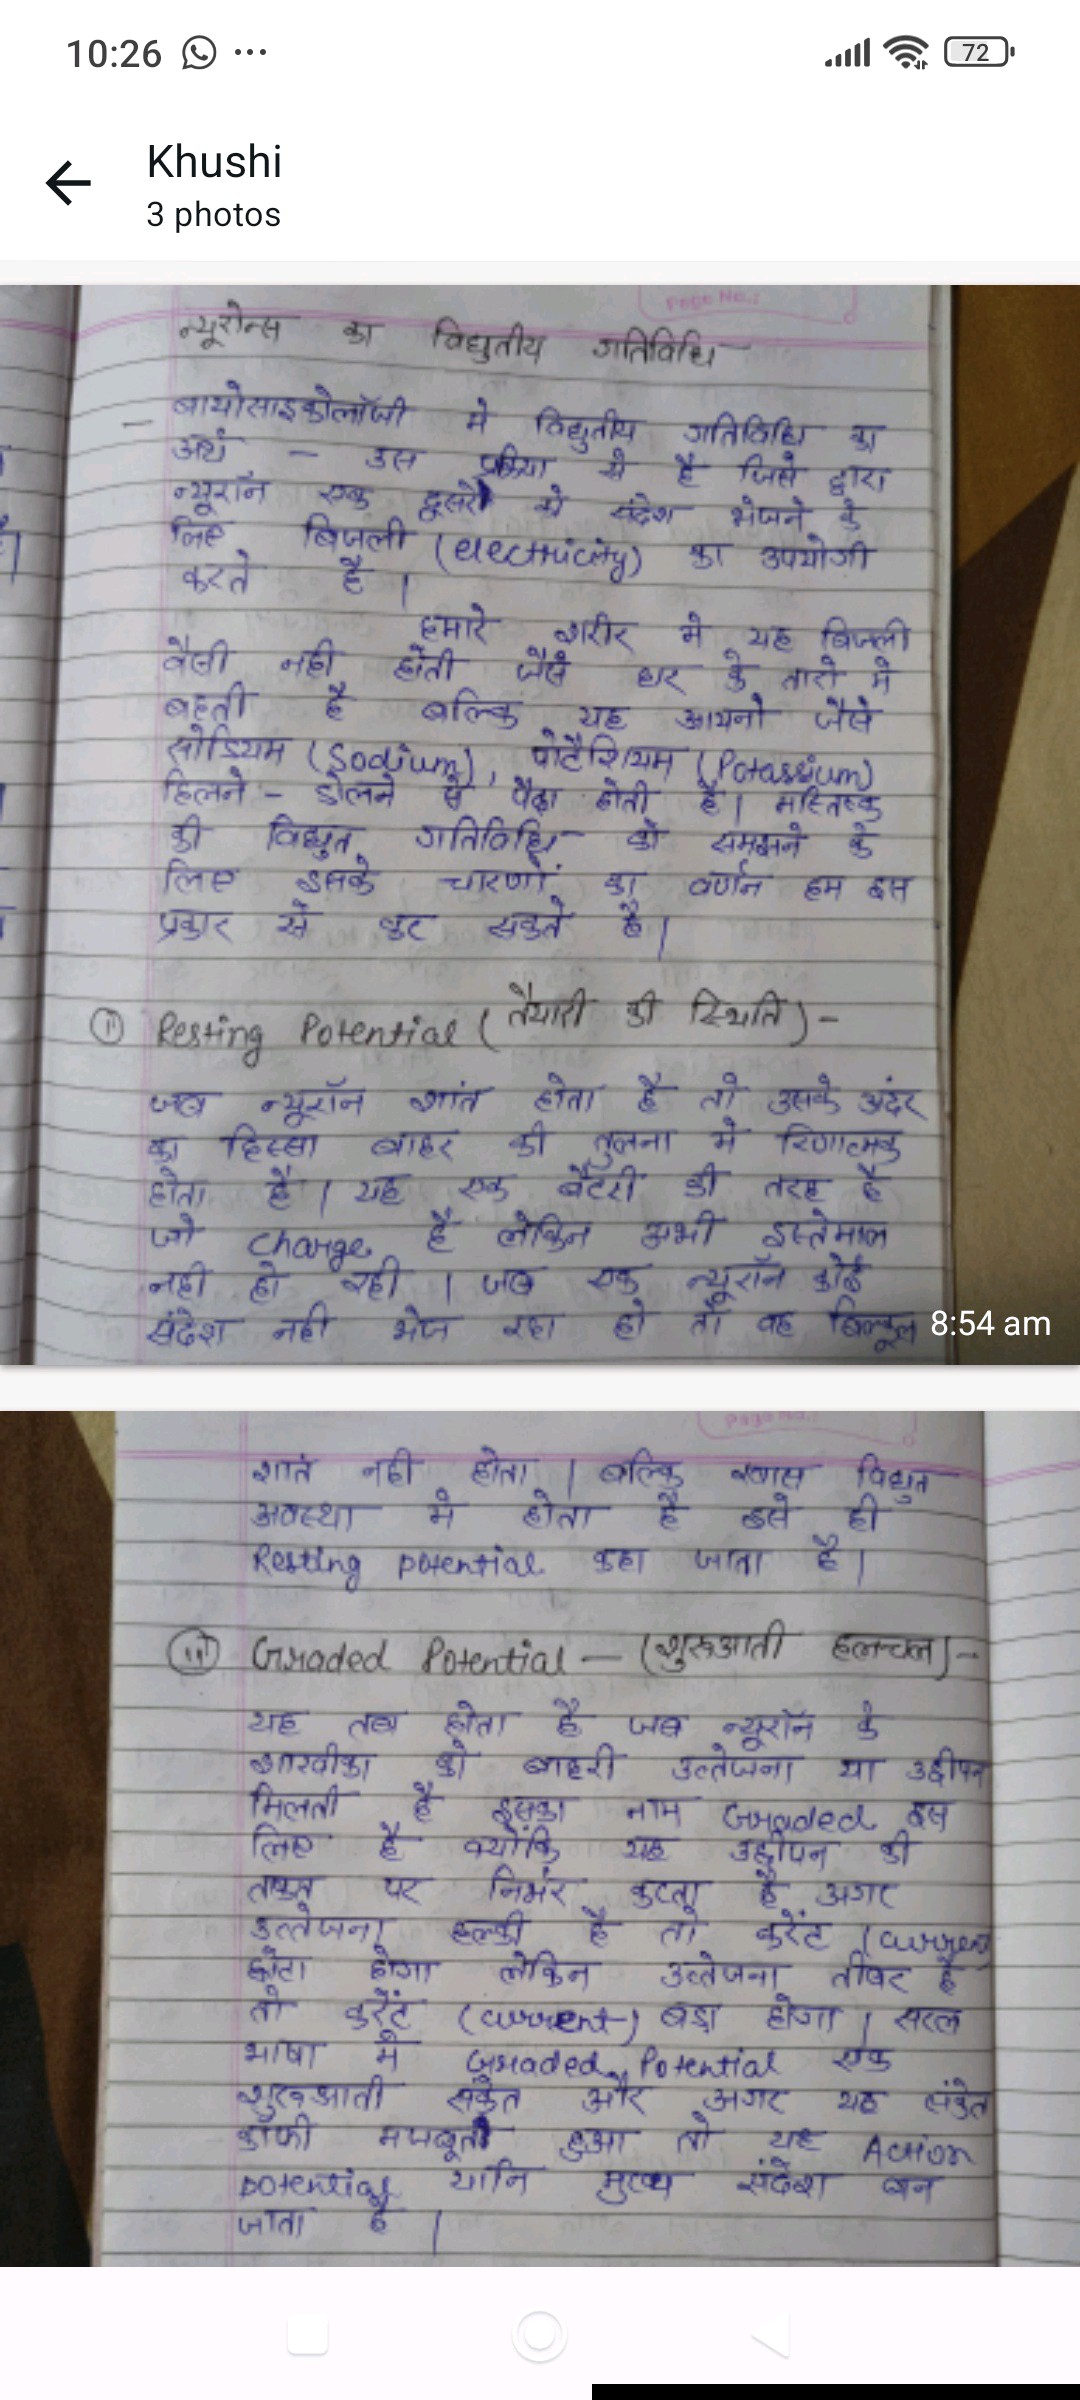 10:26
72
Khushi
3 photos
PAGE NO.:
न्यूरोन्स का विद्युतीय गतिविधि
— बायोसाइकोलॉजी मे विद्युतीय गतिविधि का
अर्थ — उस प्रक्रिया से है जिसे द्वारा
न्यूरॉन एक दूसरे को संदेश भेजने के
लिए बिजली (electricity) का उपयोगी
करते है।
हमारे शरीर मे यह बिजली
वैसी नही होती जैसे घर के तारो मे
बहती है बल्कि यह आयनो जैसे
सोडियम (Sodium), पोटैशियम (Potassium)
हिलने - डोलने से पैदा होती है। मस्तिष्क
की विद्युत गतिविधि को समझने के
लिए इसके चारणों का वर्णन हम इस
प्रकार से कर सकते है।
Resting Potential (तैयारी की स्थिति) -
जब न्यूरॉन शांत होता है तो उसके अंदर
का हिस्सा बाहर की तुलना मे रिणात्मक
होता है। यह एक बैटरी की तरह है
जो charge है लेकिन अभी इस्तेमाल
नही हो रही। जब एक न्यूरॉन कोई
संदेश नही भेज रहा हो तो वह बिल्कूल
8:54 am
शांत नही होता। बल्कि खास विद्युत
अवस्था मे होता है इसे ही
Resting potential कहा जाता है।
Graded Potential — (शुरुआती हलचल) -
यह तब होता है जब न्यूरॉन के
शाखीका को बाहरी उत्तेजना या उद्दीपन
मिलती है इसका नाम Graded इस
लिए है क्योंकि यह उद्दीपन की
ताकत पर निर्भर करता है अगर
उत्तेजना हल्की है तो करेंट (current
छोटा होगा लेकिन उत्तेजना तीवर है
तो करेंट (current) बड़ा होगा। सरल
भाषा मे Graded Potential एक
शुरुआती संकेत और अगर यह संकेत
काफी मजबूत हुआ तो यह Action
potential यानि मुख्य संदेश बन
जाता है।